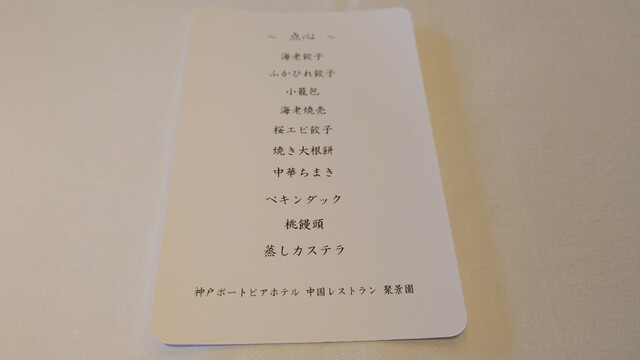 ～ 点心 ～
海老餃子
ふかひれ餃子
小籠包
海老焼売
桜エビ餃子
焼き大根餅
中華ちまき
ペキンダック
桃饅頭
蒸しカステラ
神戸ポートピアホテル 中国レストラン 聚景園